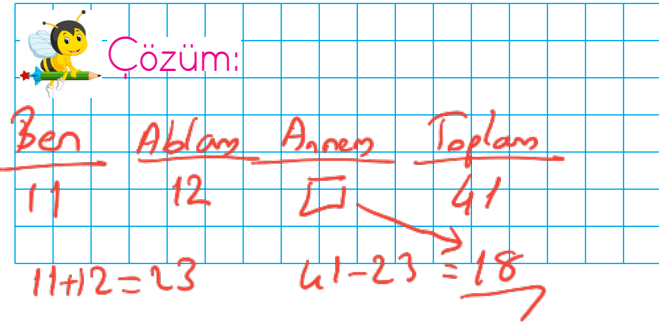 Çözüm:
Ben Ablam Annem Toplam
11 12 □ 41
11+12=23 41-23=18